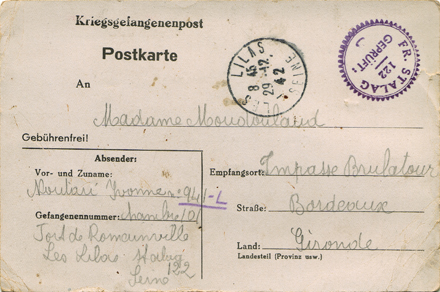 Kriegsgefangenenpost
Postkarte
LILAS
SEINE
8 45
29 -12
42
FR. STALAG
122
GEPRÜFT:
An
Madame
Gebührenfrei!
Absender:
Vor- und Zuname:
Yvonne
Gefangenennummer: chambre
Fort de Romainville
Les Lilas Stalag
122
Seine
Empfangsort: Impasse Brulatour
Straße: Bordeaux
Land: Gironde
Landesteil (Provinz usw.)